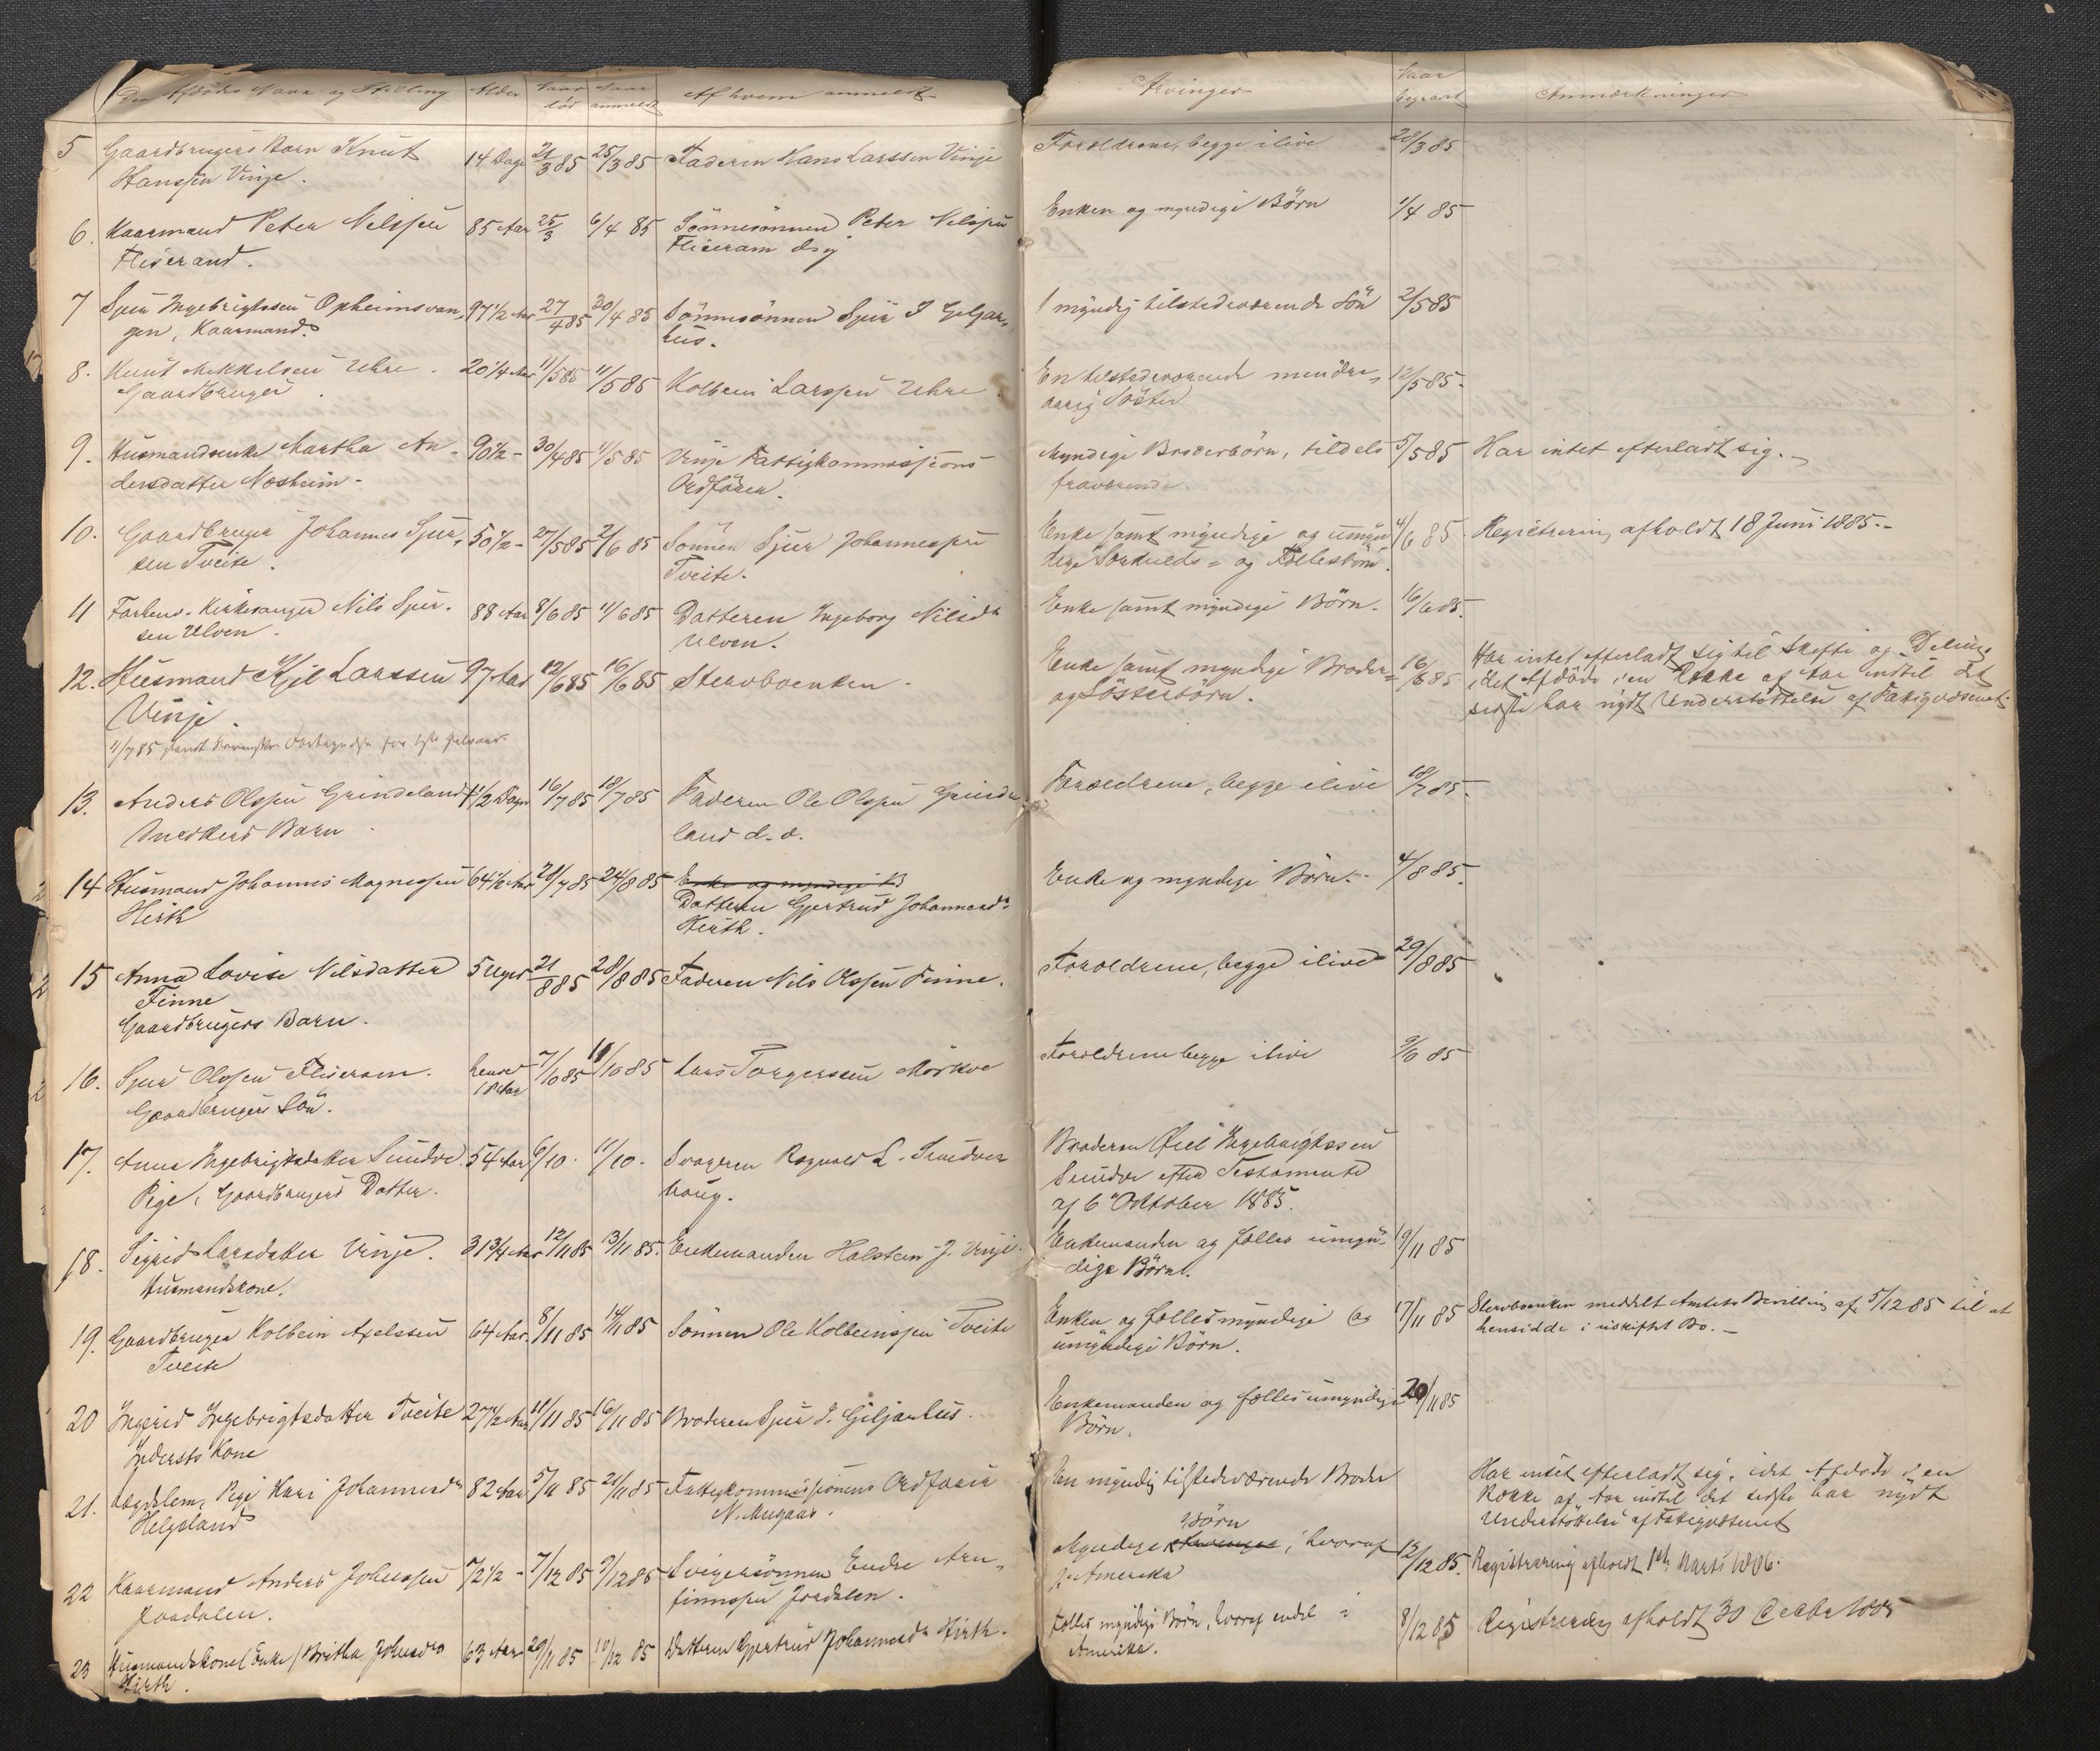 Den Afdödes Navn og Stilling Alder Naar död Naar anmeldt Af hvem anmeldt Arvinger Naar begravet Anmærkninger
5 Gaardbrugers Barn Knut 14 Dage 21/3 85 25/3 85 Faderen Hans Larssen Vinje Foræeldrene, begge ilive 28/3 85
Hanssen Vinje.
6. Kaarmand Peter Nilssen 85 Aar 25/3 6/4 85 Sönnesönnen Peter Nilssen Enken og myndige Börn 1/4 85
Fliserand. Fliseram dsg
7 Sjur Ingebrigtssen Opheimsvan- 97 1/2 Aar 27/4 85 30/4 85 Sönnesönnen Sjur I Giljar- 1 myndig tilstedeværende Sön 2/5 85
gen, Kaarmand. hus.
8. Knut Mikkelsen Uhre. 20 1/4 Aar 11/5 85 11/5 85 Kolbein Larssen Uhre En tilstedeværende mindre- 12/5 85.
Gaardbruger aarig Söster
9. Husmandsenke Martha An- 90 1/2 - 30/4 85 11/5 85 Vinje Fattigkommissions Myndige Broderbörn, tildels 5/5 85 Har intet efterladt sig.
dersdatter Næsheim - Ordförer. fraværende.
10. Gaardbruger Johannes Sjur- 50 1/2 - 27/5 85 2/6 85 Sönnen Sjur Johannessen Enke samt myndige og umyn 4/6 85. Registrering afholdt 18 Juni 1885.-
sen Tveite. Tveite. dige Særkulds- og Fællesbörn.
11 Forhenv. Kirkesanger Nils Sjur- 88 Aar 8/6 85 11/6 85 Datteren Ingeborg Nilsdr Enke samt myndige Börn. 16/6 85.
sen Ulven. Ulven.
12. Husmand Kjel Larssen 97 Aar 12/6 85 16/6 85 Stervboenken. Enke samt myndige Broder- 16/6 85 Har intet efterladt sig til Skifte og Deling
Vinje. og Sösterbörn. idet Afdöde i en Række af Aar indtil det
sidste har nydt Understöttelse af Fattigvæsenet.
11/7 85 sendt
13. Anders Olssen Grindeland 1 1/2 Dagn 16/7 85 18/7 85 Faderen Ole Olssen Grinde- Foræeldrene, begge ilive 18/7 85.
Snedkers Barn land d. o.
14 Husmand Johannes Magnessen 64 1/2 Aar 28/7 85 24/8 85 Enke og myndige B Enke og myndige Börn.- 4/8 85.
Hirth Datteren Gjertrud Johannesdr
Hirth.
15 Anna Lovise Nilsdatter 5 Uger 21/8 85 28/8 85 Faderen Nils Olssen Finne. Foræeldrene, begge ilive 29/8 85
Finne
Gaardbrugers Barn.
16. Sjur Olssen Fliseram. henved 18 Aar 7/10 85 11/10 85 Lars Torgerssen Mörkve Foræeldrene begge ilive 9/10 85
Gaardbrugers Sön.
17. Anna Ingebrigtsdatter Sundve. 54 Aar 6/10 - 11/10 - Svogeren Ragnald L. Sundver Broderen Ingebrigtssen
Pige, Gaardbrugers Datter. haug. Sundve efter Testamente
af 6 Oktober 1885.
18. Sigrid Larsdatter Vinje. 31 3/4 Aar 12/11 85 13/11 85. Enkemanden Holstein J. Vinje Enkemanden og fælles umyn- 19/11 85
Husmandskone. dige Börn.
19. Gaardbruger Kolbein Axelssen 64 Aar. 8/11 85 14/11 85 Sönnen Ole Kolbeinssen Tveite Enken og fælles myndige og 17/11 85 Stervboenken meddelt Amtets Bevilling af 5/12 85 til at
Tveite umyndige Börn. hensidde i uskiftet Bo.-
20 Ingerid Ingebrigtsdatter Tveite 27 1/2 Aar 11/11 85 16/11 85 Broderen Sjur I. Giljarhus. Enkemanden og fælles umyndige 20/11 85
Inderstskone Börn.
21. Lægdslem, Pige Kari Johannesdr 82 Aar 5/11 85 21/11 85 Fattigkommissionens Ordförer En myndig tilstedeværende Broder Har intet efterladt sig, idet Afdöde i en
Helgeland N. Mugaas. Række af Aar indtil det sidste har nydt
Understöttelse af Fattigvæsenet
22 Kaarmand Anders Johnssen 72 1/2 - 7/12 85 9/12 85 Svigersönnen Endre Arn- Myndige Arvinger Börn, hvoraf 12/12 85. Registrering afholdt 1ste Marts 1886.
Jordalen. finnssen Jordalen. i Amerika
23 Husmandskone (Enke) Britha Johnsdr 63 Aar 29/11 85 10/12 85 Datteren Gjertrud Johannesdr Hirth. Fælles myndige Börn, hvoraf endel i 8/12 85 Registrering afholdt 30 Decbr 1885
Hirth. Amerika.